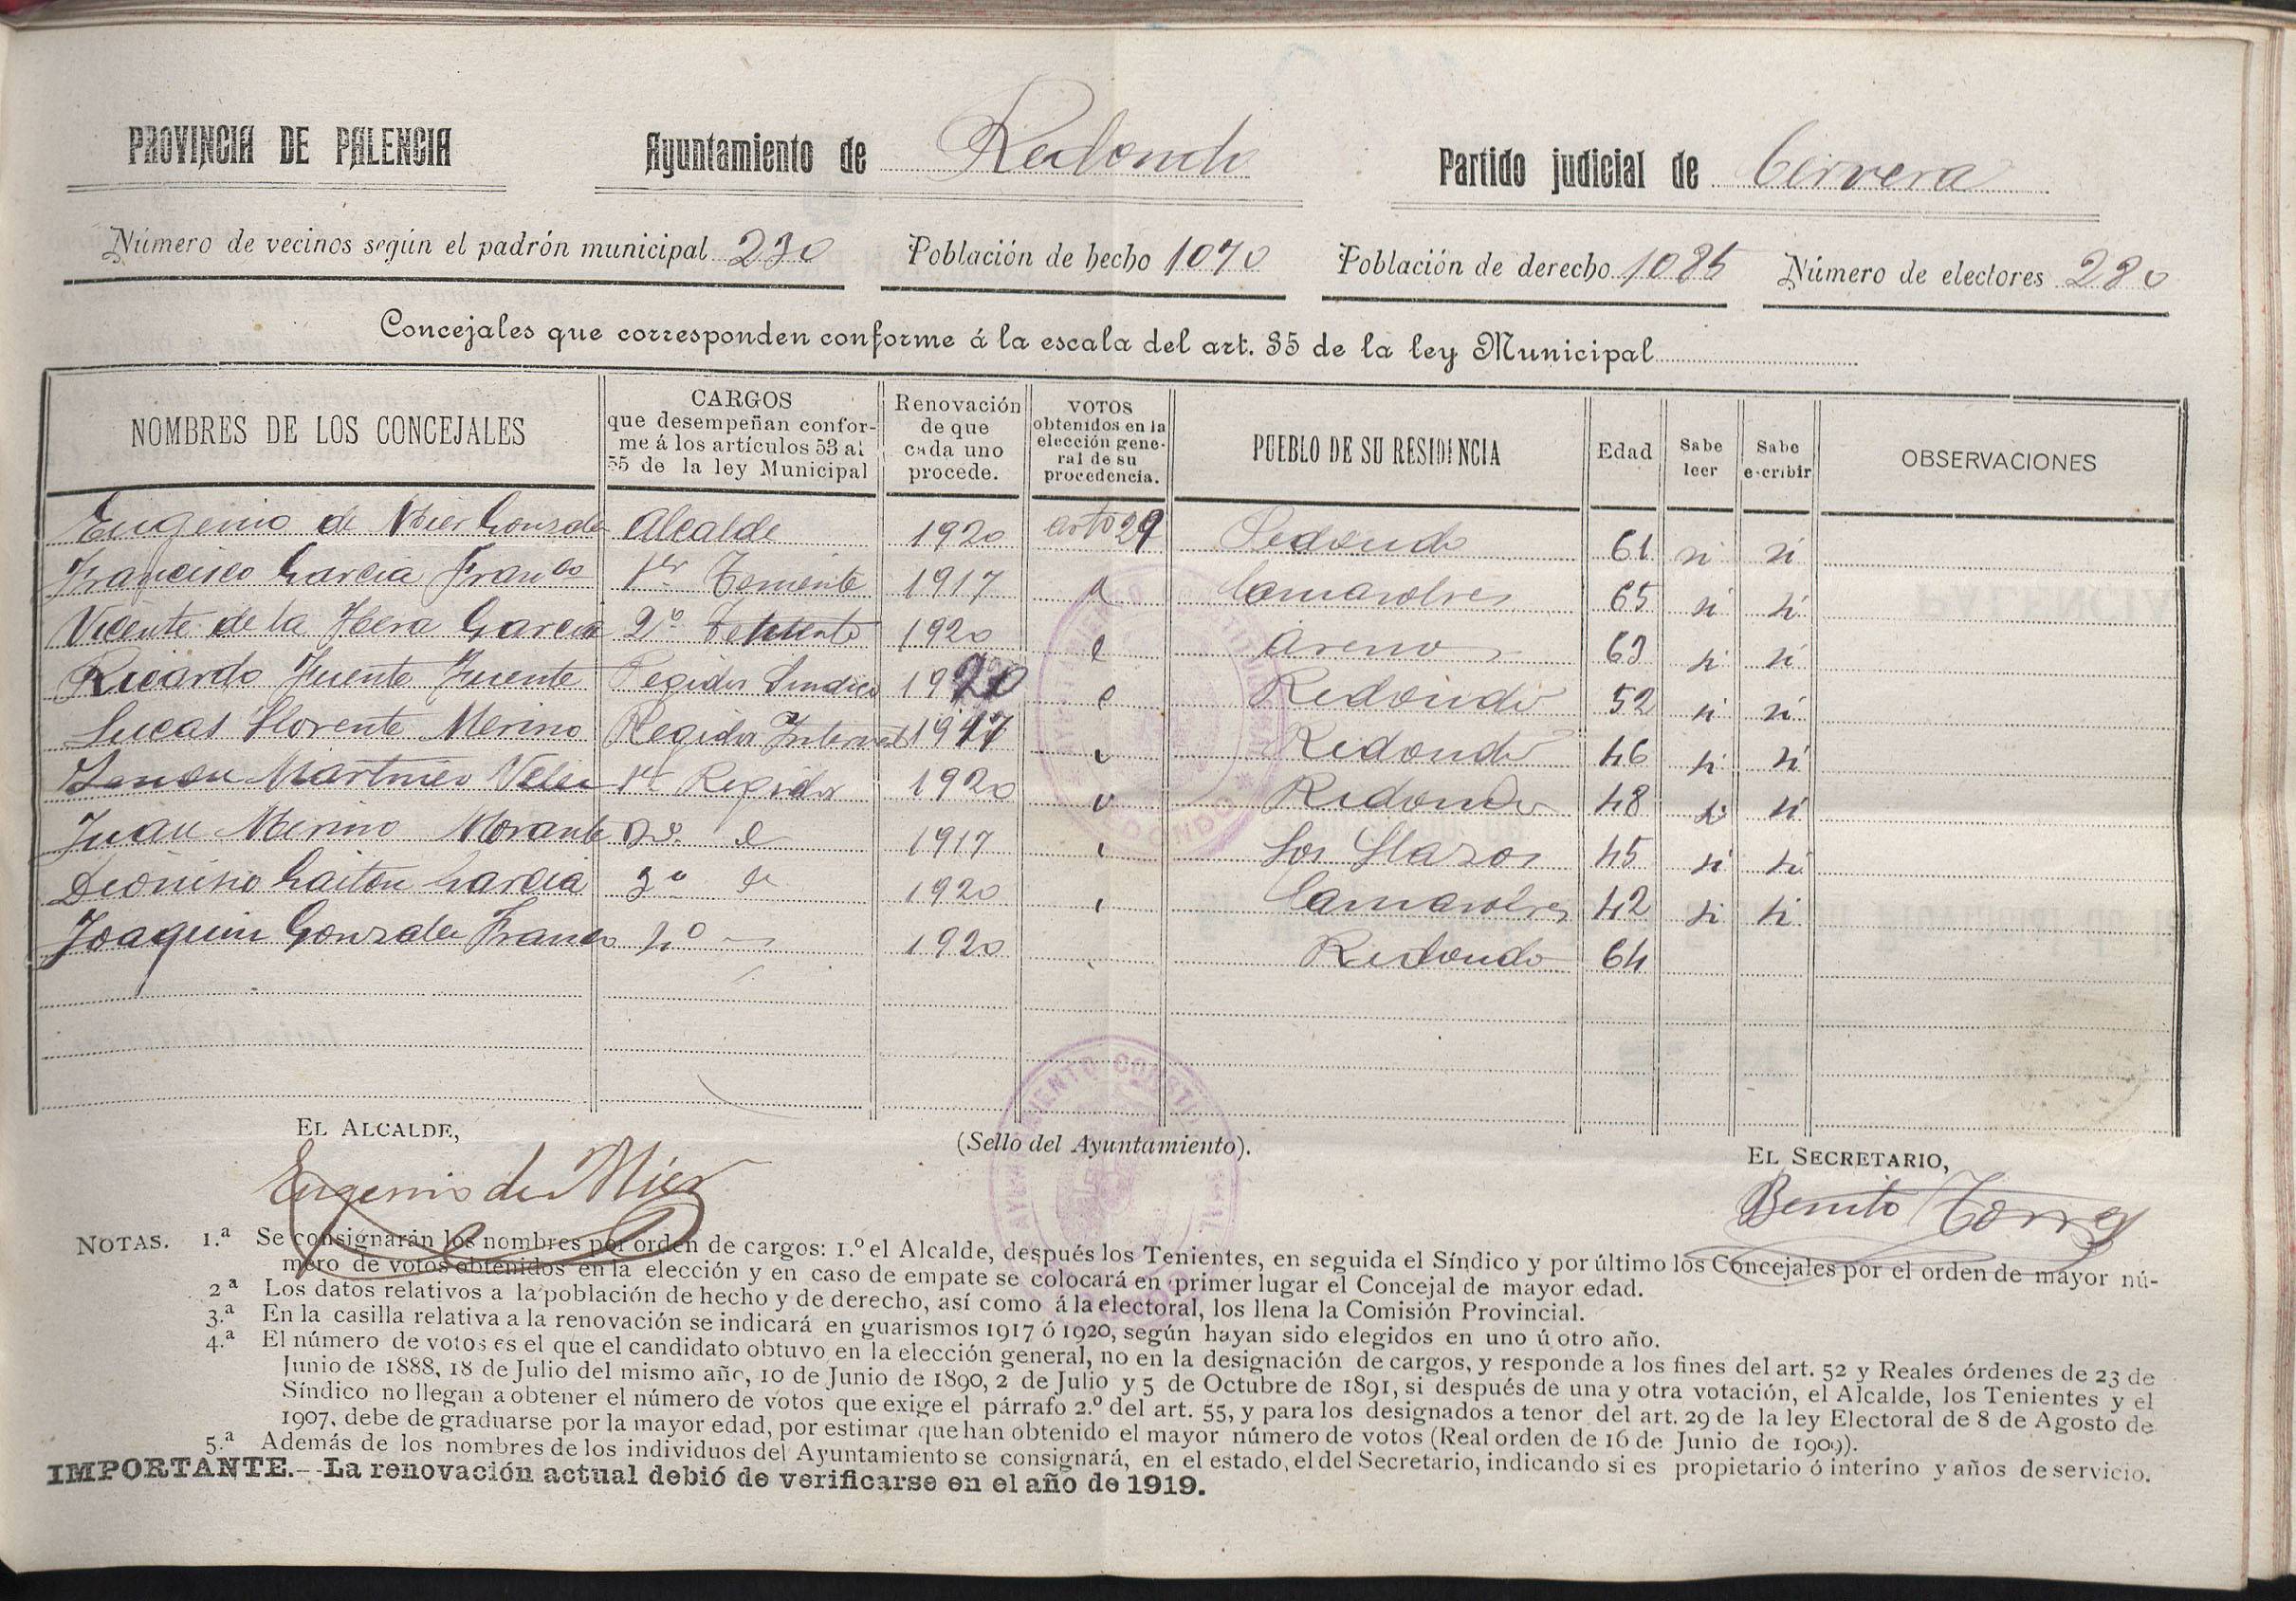 PROVINCIA DE PALENCIA Ayuntamiento de Redondo Partido judicial de Cervera
Número de vecinos según el padrón municipal 230 Población de hecho 1070 Población de derecho 1085 Número de electores 280
Concejales que corresponden conforme á la escala del art. 35 de la ley Municipal
NOMBRES DE LOS CONCEJALES
CARGOS
que desempeñan confor-
me á los artículos 53 al
55 de la ley Municipal
Renovación
de que
cada uno
procede.
VOTOS
obtenidos en la
elección gene-
ral de su
procedencia.
PUEBLO DE SU RESIDENCIA
Edad
Sabe
leer
Sabe
escribir
OBSERVACIONES
Eugenio de Mier Gonzale Alcalde 1920 arto 29 Redondo 61 si si
Francisco Garcia Franco 1er Teniente 1917 Camasobres 65 si si
Vicente de la Hera Garcia 2º Teniente 1920 Areños 63 si si
Ricardo Fuente Fuente Regidor Sindico 1920 Redondo 52 si si
Lucas Llorente Merino Regidor 1917 Redondo 46 si si
Martinez Velez 1er Regidor 1920 Redondo 48 si si
Juan Merino Morante 2º 1917 Los Llazos 45 si si
Dionisio Gaiton Garcia 3º 1920 Camasobres 42 si si
Joaquin Gonzalez Franco 4º 1920 Redondo 64
EL ALCALDE,
(Sello del Ayuntamiento).
EL SECRETARIO,
Eugenio de Mier
Benito Torres
NOTAS. 1.ª Se consignarán los nombres por orden de cargos: 1.º el Alcalde, después los Tenientes, en seguida el Síndico y por último los Concejales por el orden de mayor nú-
mero de votos obtenidos en la elección y en caso de empate se colocará en primer lugar el Concejal de mayor edad.
2ª Los datos relativos a la población de hecho y de derecho, así como á la electoral, los llena la Comisión Provincial.
3.ª En la casilla relativa a la renovación se indicará en guarismos 1917 ó 1920, según hayan sido elegidos en uno ú otro año.
4.ª El número de votos es el que el candidato obtuvo en la elección general, no en la designación de cargos, y responde a los fines del art. 52 y Reales órdenes de 23 de
Junio de 1888, 18 de Julio del mismo año, 10 de Junio de 1890, 2 de Julio y 5 de Octubre de 1891, si después de una y otra votación, el Alcalde, los Tenientes y el
Síndico no llegan a obtener el número de votos que exige el párrafo 2.º del art. 55, y para los designados a tenor del art. 29 de la ley Electoral de 8 de Agosto de
1907, debe de graduarse por la mayor edad, por estimar que han obtenido el mayor número de votos (Real orden de 16 de Junio de 1909).
5.ª Además de los nombres de los individuos del Ayuntamiento se consignará, en el estado, el del Secretario, indicando si es propietario ó interino y años de servicio.
IMPORTANTE.--La renovación actual debió de verificarse en el año de 1919.